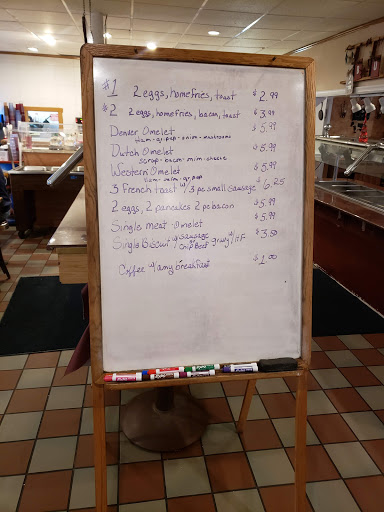 #1 2 eggs, homefries, toast $2.99
#2 2 eggs, homefries, bacon, toast $3.99
Denver Omelet $5.99
Ham-gr.pep-onion-mushrooms
Dutch Omelet $5.99
scrap-bacon-mim-cheese
Western Omelet $5.99
Ham-onion-gr.pep
3 French toast w/ 3 pc small Sausage $6.25
2 eggs, 2 pancakes 2 pc bacon $5.99
Single meat Omelet $5.99
Single Biscuit w/ Sausage gravy w/ HF $3.50
Chip Beef
Coffee w/ any breakfast $1.00